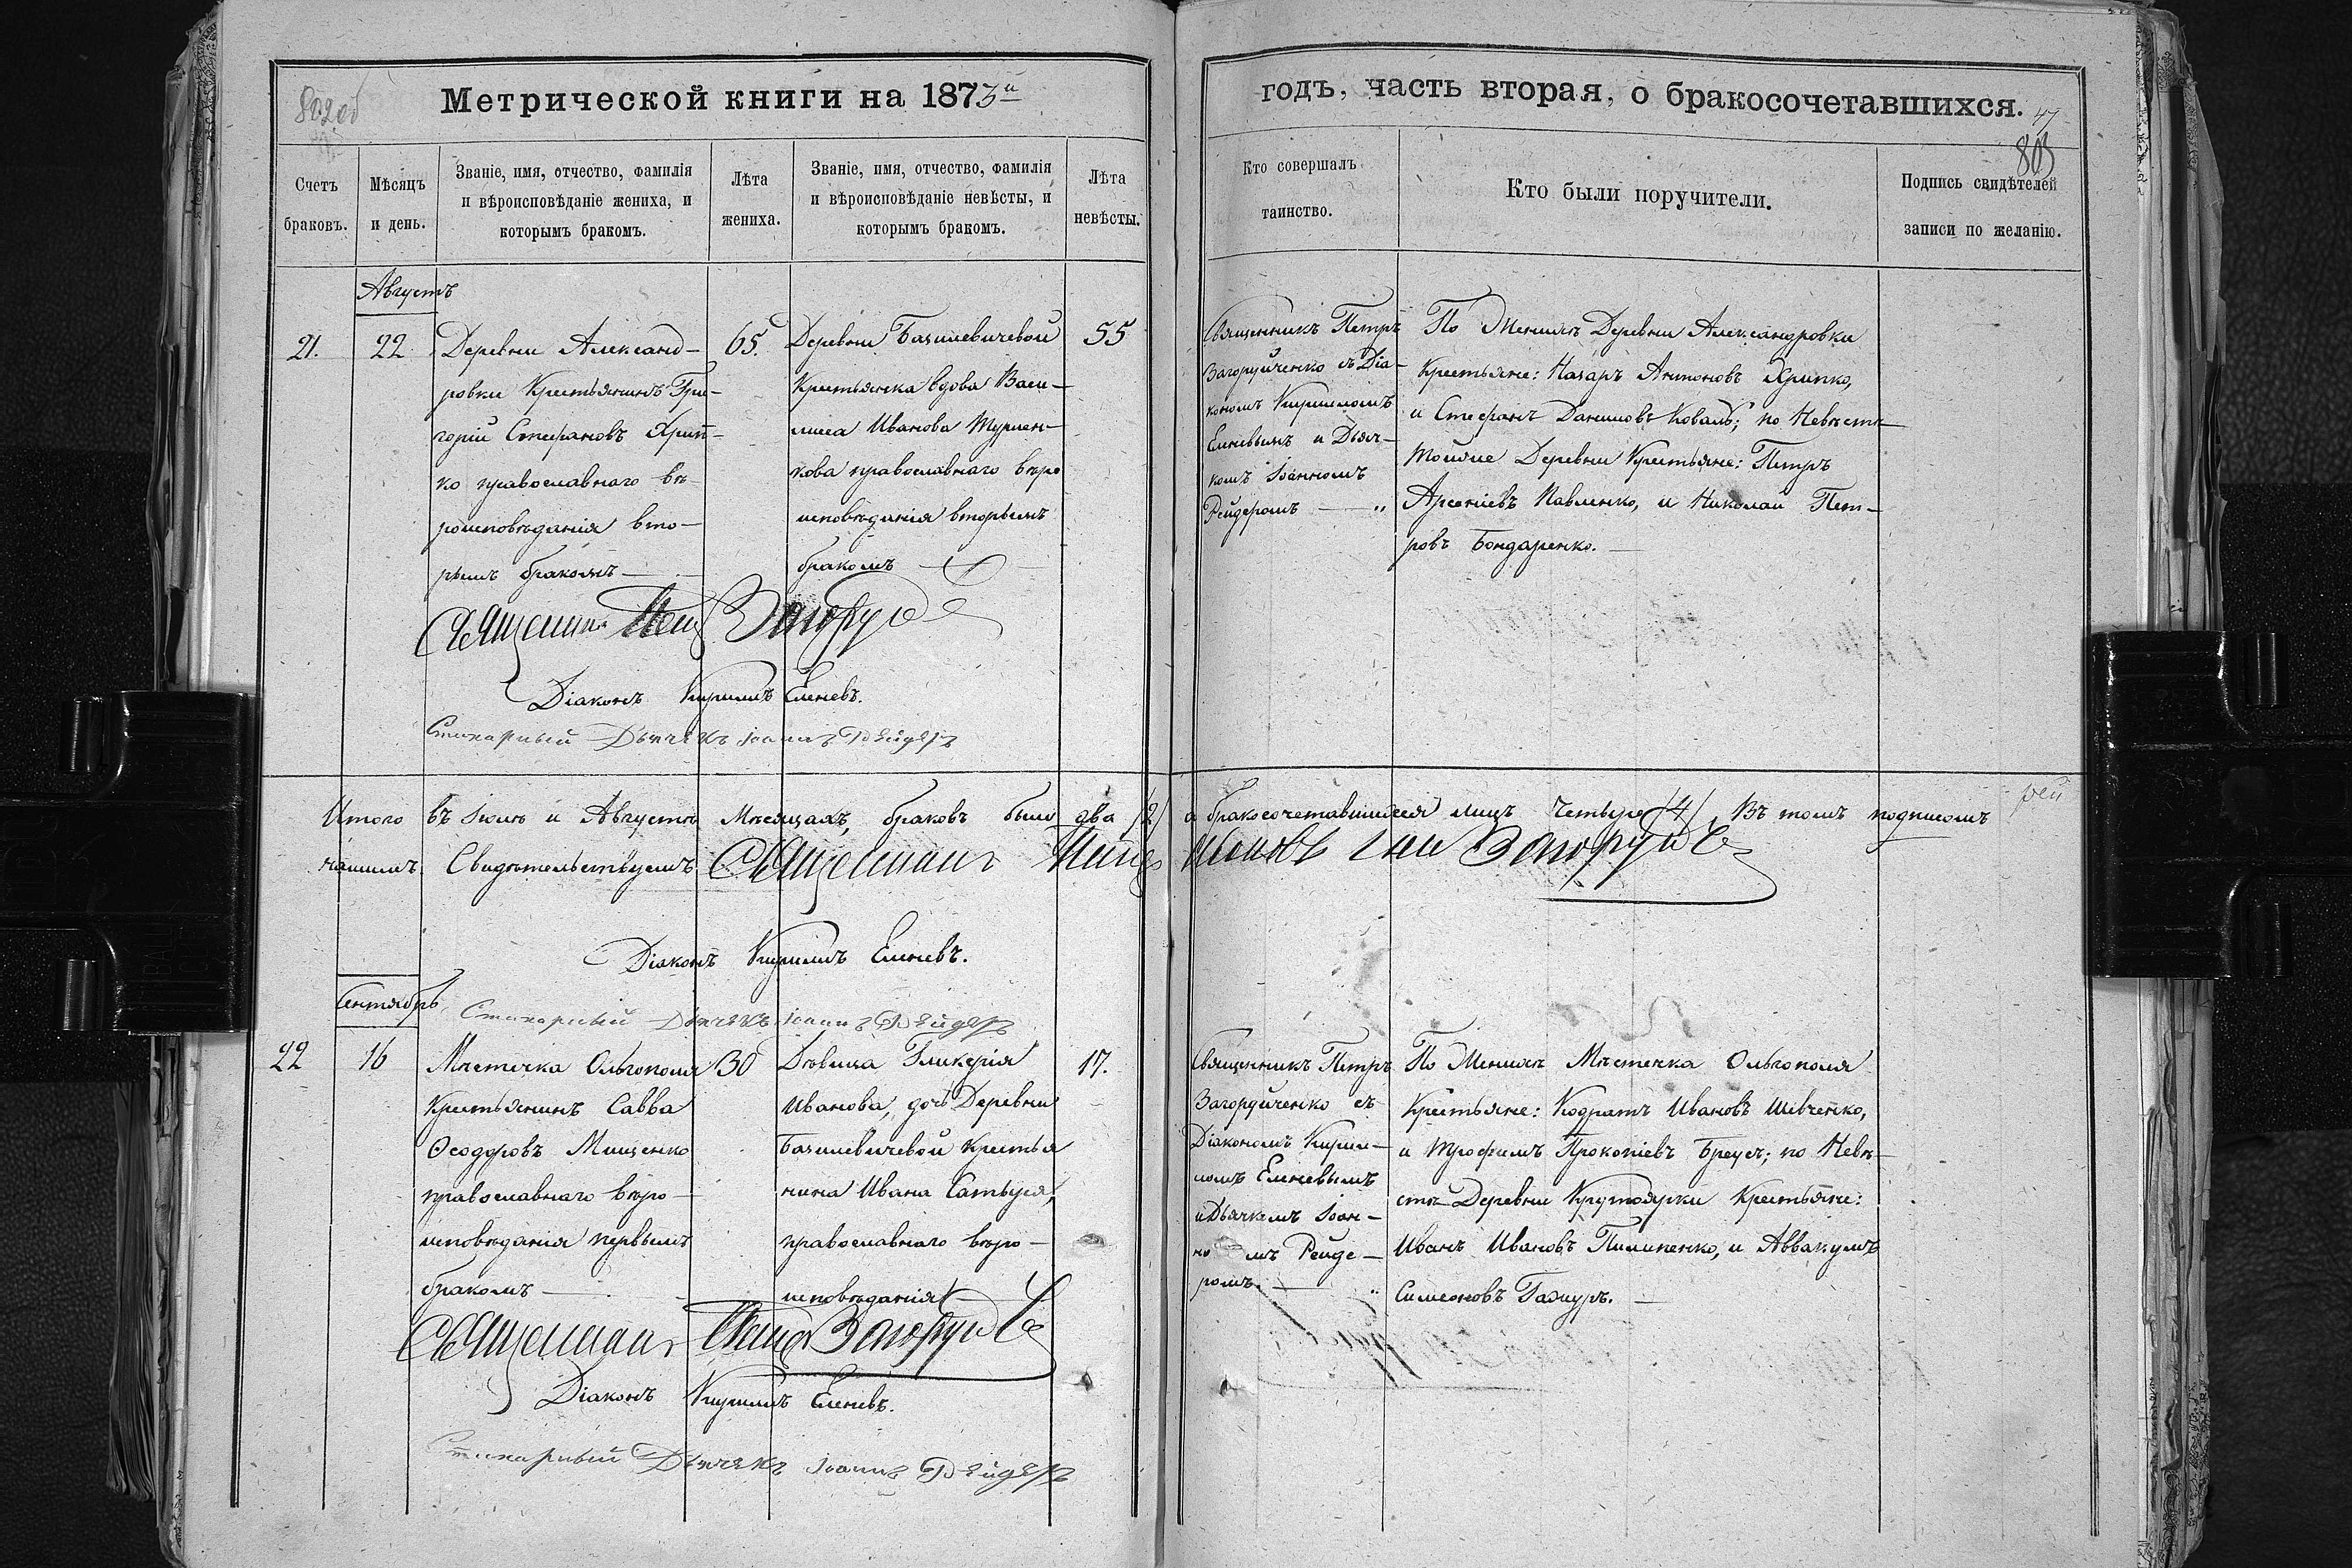 802 об
Метрической книги на 1873й
годъ, часть вторая, о бракосочетавшихся.
47
803
Счетъ браковъ.
Мѣсяцъ и день.
Званіе, имя, отчество, фамилія
и вѣроисповѣданіе жениха, и
которымъ бракомъ.
Лѣта
жениха.
Званіе, имя, отчество, фамилія
и вѣроисповѣданіе невѣсты, и
которымъ бракомъ.
Лѣта
невѣсты.
Кто совершалъ
таинство.
Кто были поручители.
Подпись свидѣтелей
записи по желанію.
Августъ
21.
22
Деревни Александ-
ровки Крестьянинъ Гри-
горій Стефановъ Хрип-
ко православнаго вѣ-
роисповѣданія вто-
рымъ бракомъ
65.
Деревни Базилевичевой
Крестьянка вдова Васи-
лиса Иванова Журлен-
кова православнаго вѣро
исповѣданія вторымъ
бракомъ
55
Священникъ Петръ
Загоруйченко съ Діа-
кономъ Кирилломъ
Елневымъ и Дьяч-
комъ Іоанномъ
Рейдеромъ
По Женихѣ Деревни Александровки
Крестьяне: Назаръ Антоновъ Хрипко,
и Стефанъ Даниловъ Коваль; по Невѣстѣ
Тойже Деревни Крестьяне: Петръ
Арсеніевъ Павленко, и Николай Пет-
ровъ Бондаренко.
Священникъ Петръ
Діаконъ Кириллъ Елневъ.
Стихарный Дьячекъ Іоаннъ Рейдеръ
Итого въ Іюлѣ и Августѣ Мѣсяцахъ, браковъ было два /2/ а бракосочетавшихся лицъ четыре /4/. Въ томъ подписомъ
рей
нашимъ Свидѣтельствуемъ Священникъ Петръ
Діаконъ Кириллъ Елневъ.
Стихарный Дьячекъ Іоаннъ Рейдеръ
Сентябрь
22
16
Мѣстечка Ольгополя
Крестьянинъ Савва
Ѳеодоровъ Мищенко
православнаго вѣро-
исповѣданія первымъ
бракомъ
30
Дѣвица Гликерія
Иванова, дочь Деревни
Базилевичевой Крестья
нина Ивана Сатыуся,
православнаго вѣро-
исповѣданія
17.
Священникъ Петръ
Загоруйченко съ
Діакономъ Кирил-
ломъ Елневымъ
и Дьячкомъ Іоан-
но мъ Рейде-
ромъ.
По Женихѣ Мѣстечка Ольгополя
Крестьяне: Кодратъ Ивановъ Шевченко,
и Трофимъ Прокопіевъ Бреусъ; по Невѣ-
стѣ Деревни Крутоярки Крестьяне:
Иванъ Ивановъ Пилипенко, и Аввакумъ
Симеоновъ Гажуръ.
Священникъ Петръ
Діаконъ Кириллъ Елневъ.
Стихарный Дьячекъ Іоаннъ Рейдеръ